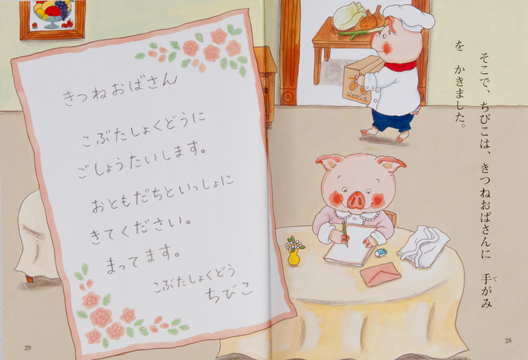 そこで、ちびこは、きつねおばさんに　手がみ
て
を　かきました。
28
きつねおばさん
こぶたしょくどうに
ごしょうたいします。
おともだちといっしょに
きてください。
まってます。
こぶたしょくどう
ちびこ
29